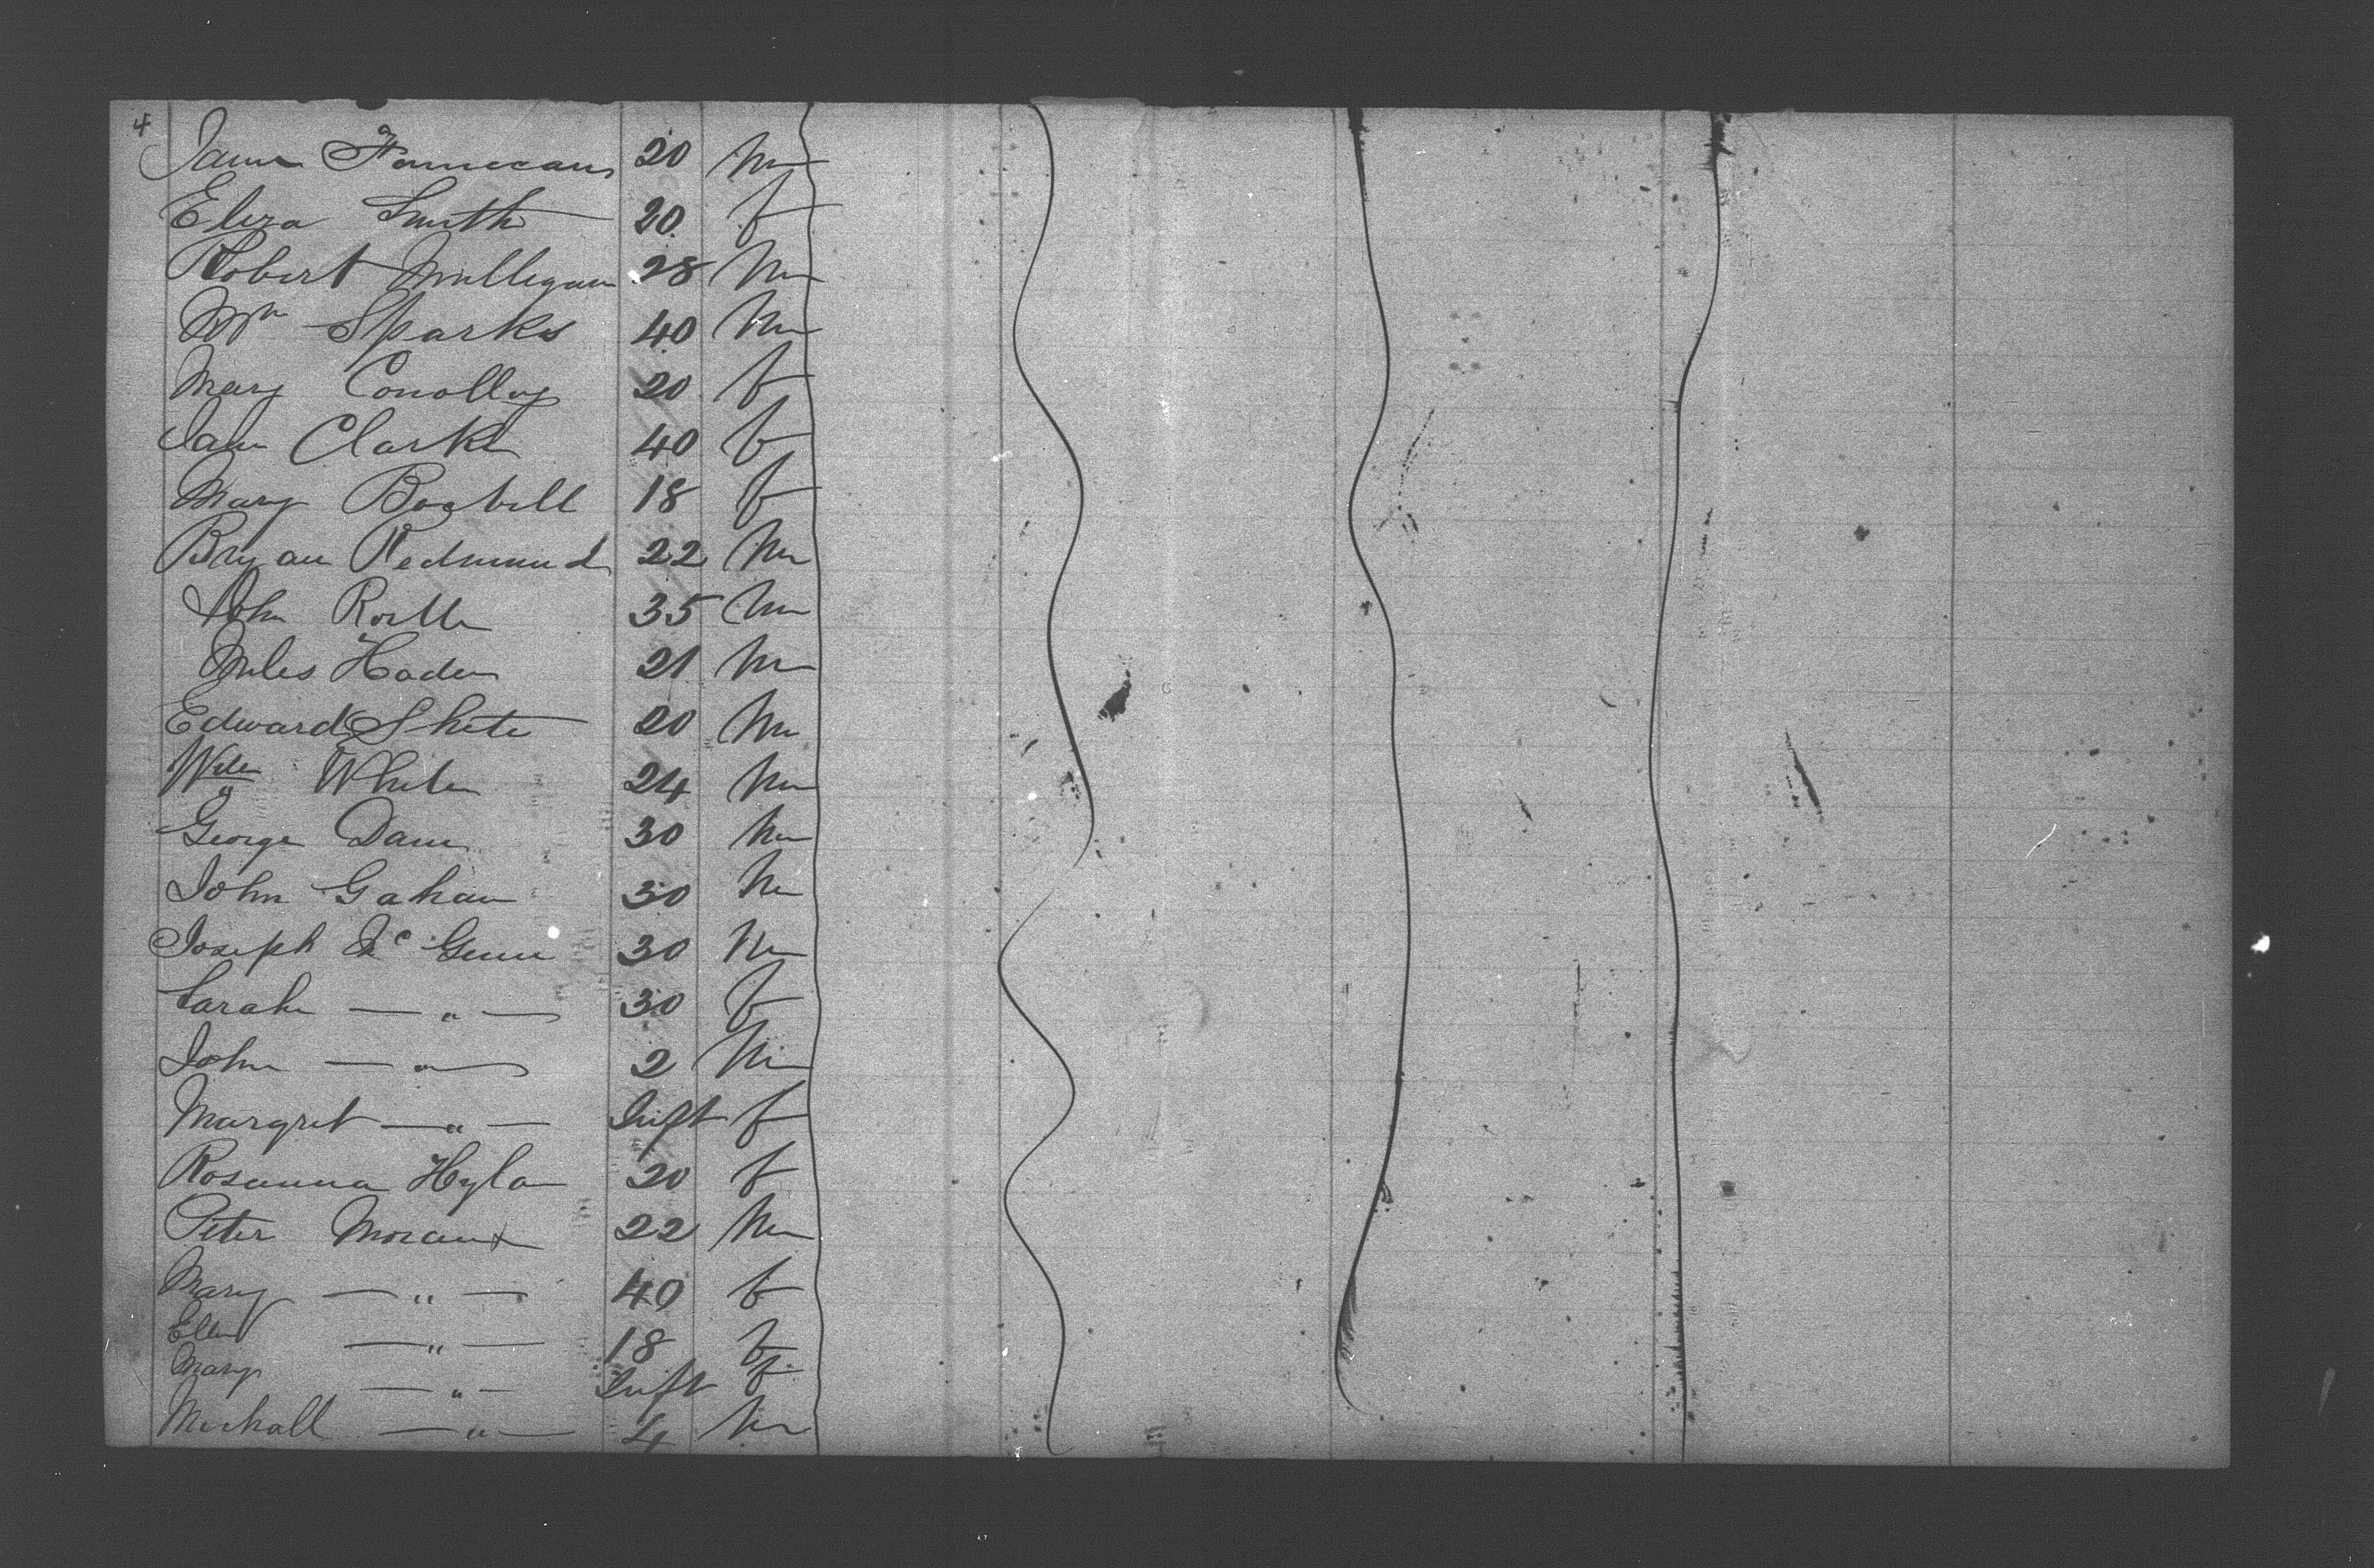 4
James Finnecan 20 m
Eliza Smith 20 f
Robert Mulligan 28 m
Wm Sparks 40 m
Mary Conolly 20 f
Jane Clarke 40 f
Mary 18 f
Bryan Redmund 22 m
John 35 m
Miles Haden 21 m
Edward 20 m
White 24 m
George 30 m
John Gahan 30 m
Joseph Mc Gunn 30 m
Sarah — " — 30 f
John — " — 2 m
Margret — " — Inft f
Rosanna Hylan 20 f
Peter Moran 22 m
Mary — " — 40 f
Ellen — " — 18 f
Mary — " — Inft f
Michall — " — 4 m